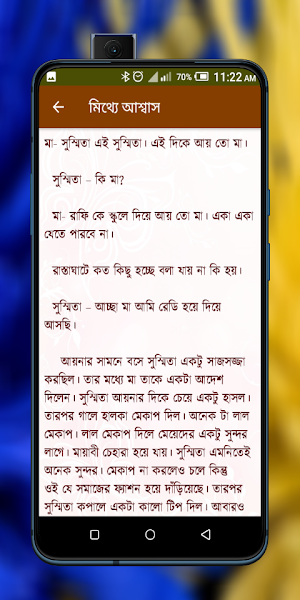 70% 11:22 AM
মিথ্যে আশ্বাস
মা- সুস্মিতা এই সুস্মিতা। এই দিকে আয় তো মা।
সুস্মিতা – কি মা?
মা- রাফি কে স্কুলে দিয়ে আয় তো মা। একা একা
যেতে পারবে না।
রাস্তাঘাটে কত কিছু হচ্ছে বলা যায় না কি হয়।
সুস্মিতা – আচ্ছা মা আমি রেডি হয়ে দিয়ে
আসছি।
আয়নার সামনে বসে সুস্মিতা একটু সাজসজ্জা
করছিল। তার মধ্যে মা তাকে একটা আদেশ
দিলেন। সুস্মিতা আয়নার দিকে চেয়ে একটু হাসল।
তারপর গালে হালকা মেকাপ দিল। অনেক টা লাল
মেকাপ। লাল মেকাপ দিলে মেয়েদের একটু সুন্দর
লাগে। মায়াবী চেহারা হয়ে যায়। সুস্মিতা এমনিতেই
অনেক সুন্দর। মেকাপ না করলেও চলে কিন্তু
ওই যে সমাজের ফ্যাশন হয়ে দাঁড়িয়েছে। তারপর
সুস্মিতা কপালে একটা কালো টিপ দিল। আবারও